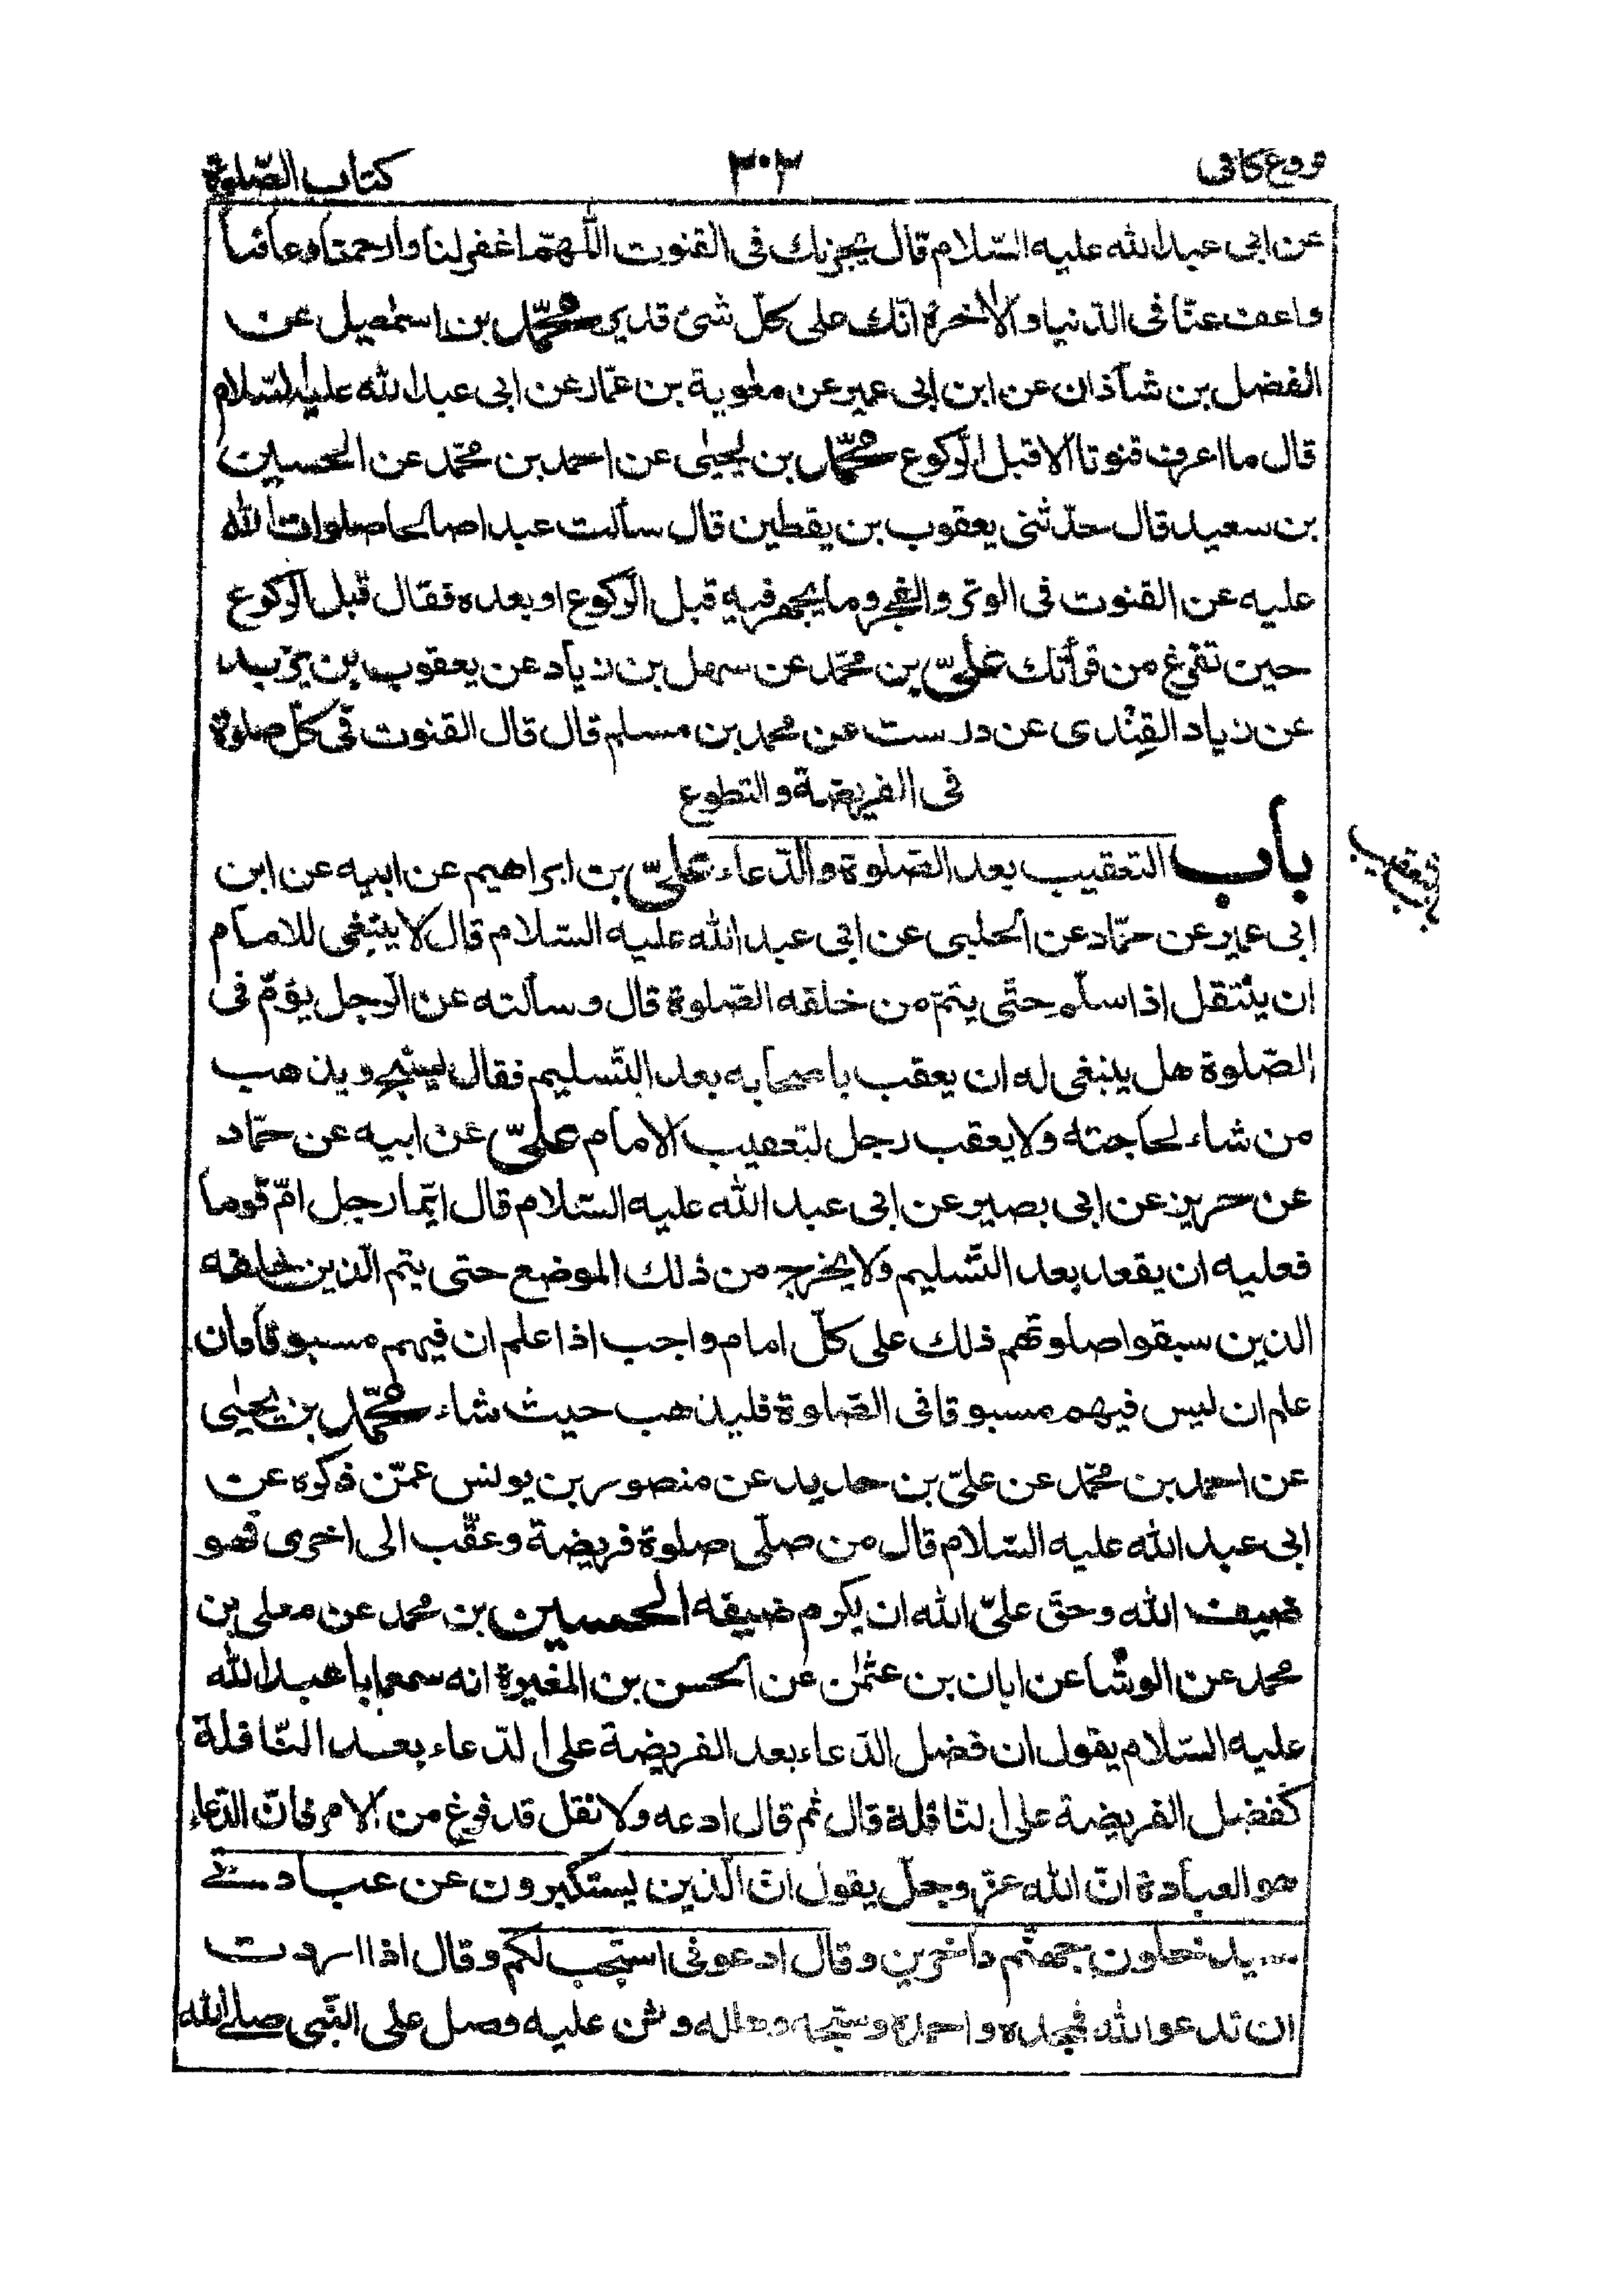 فروع كافى
٣٠٢
كتاب الصّلوة
عن ابى عبد الله عليه السّلام قال يجزيك فى القنوت اللّهمّ اغفر لنا وارحمنا وعافنا
واعف عنّا فى الدّنيا والاخرة انّك على كلّ شئ قدير محمّد بن اسمٰعيل عن
الفضل بن شاذان عن ابن ابى عمير عن معٰوية بن عمّار عن ابى عبد الله عليه السّلام
قال ما اعرف قنوتا الا قبل الرّكوع محمّد بن يحيٰى عن احمد بن محمّد عن الحسين
بن سعيد قال حدّثنى يعقوب بن يقطين قال سألت عبدا صالحا صلوات الله
عليه عن القنوت فى الوتر والفجر وما يجهر فيه قبل الرّكوع او بعده فقال قبل الرّكوع
حين تفرغ من قرأتك علىّ بن محمّد عن سهل بن زياد عن يعقوب بن يزيد
عن زياد القِنْدى عن درست عن محمد بن مسلم قال قال القنوت فى كلّ صلوة
فى الفريضة والتطوع
باب التعقيب بعد الصّلوة والدّعاء علىّ بن ابراهيم عن ابيه عن ابن
باب التعقيب
ابى عمير عن حمّاد عن الحلبى عن ابى عبد الله عليه السّلام قال لا ينبغى للامام
ان ينتقل اذا سلّم حتّى يتمّ من خلفه الصّلوة قال وسألته عن الرّجل يؤمّ فى
الصّلوة هل ينبغى له ان يعقب باصحابه بعد التّسليم فقال يسبّح ويذهب
من شاء لحاجته ولا يعقب رجل لتعقيب الامام علىّ عن ابيه عن حمّاد
عن حريز عن ابى بصير عن ابى عبد الله عليه السّلام قال ايّما رجل امّ قوما
فعليه ان يقعد بعد التّسليم ولا يخرج من ذلك الموضع حتى يتم الّذين خلفه
الذين سبقوا صلوتهم ذلك على كلّ امام واجب اذا علم ان فيهم مسبوقا وان
علم ان ليس فيهم مسبوقا فى الصّلوة فليذهب حيث شاء محمّد بن يحيٰى
عن احمد بن محمّد عن علىّ بن حديد عن منصور بن يونس عمّن ذكره عن
ابى عبد الله عليه السّلام قال من صلّى صلوة فريضة وعقّب الى اخرى فهو
ضيف الله وحق علىّ الله ان يكرم ضيفه الحسين بن محمد عن معلى بن
محمد عن الوشّا عن ابان بن عثمٰن عن الحسن بن المغيرة انه سمع ابا عبد الله
عليه السّلام يقول ان فضل الدّعاء بعد الفريضة على الدّعاء بعد النّافلة
كفضل الفريضة على النافلة قال ثم قال ادعه ولا نقل قد فرغ من الامر فانّ الدّعاء
هو العبادة انّ الله عزّ وجلّ يقول انّ الّذين يستكبرون عن عبادتى
سيدخلون جهنّم داخرين وقال ادعونى استجب لكم وقال اذا اردت
ان تدعو الله فمجده واحمده وسبّحه وهلله وثن عليه وصل على النّبى صلى الله